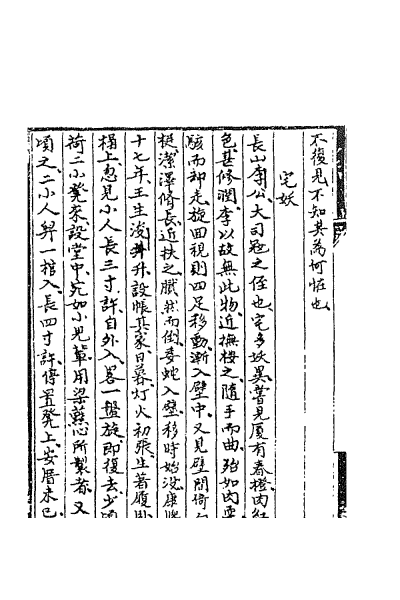 不復見不知其為何怪也
宅妖
長山李公大司寇之侄也宅多妖異嘗見厦有春櫈肉紅
色甚修潤李以故無此物近撫按之隨手而曲殆如肉耎
駭而却走旋回視則四足移動漸入壁中又見壁間倚白
梃潔澤修長近扶之膩然而倒委蛇入壁移時始没康熙
十七年王生浚升設帳其家日暮灯火初張生著履臥
榻上忽見小人長三寸許自外入畧一盤旋即復去少頃
荷二小凳来設堂中宛如小兒輩用梁䕸心所製者又
頃之二小人舁一棺入長四寸許停置凳上安厝未已